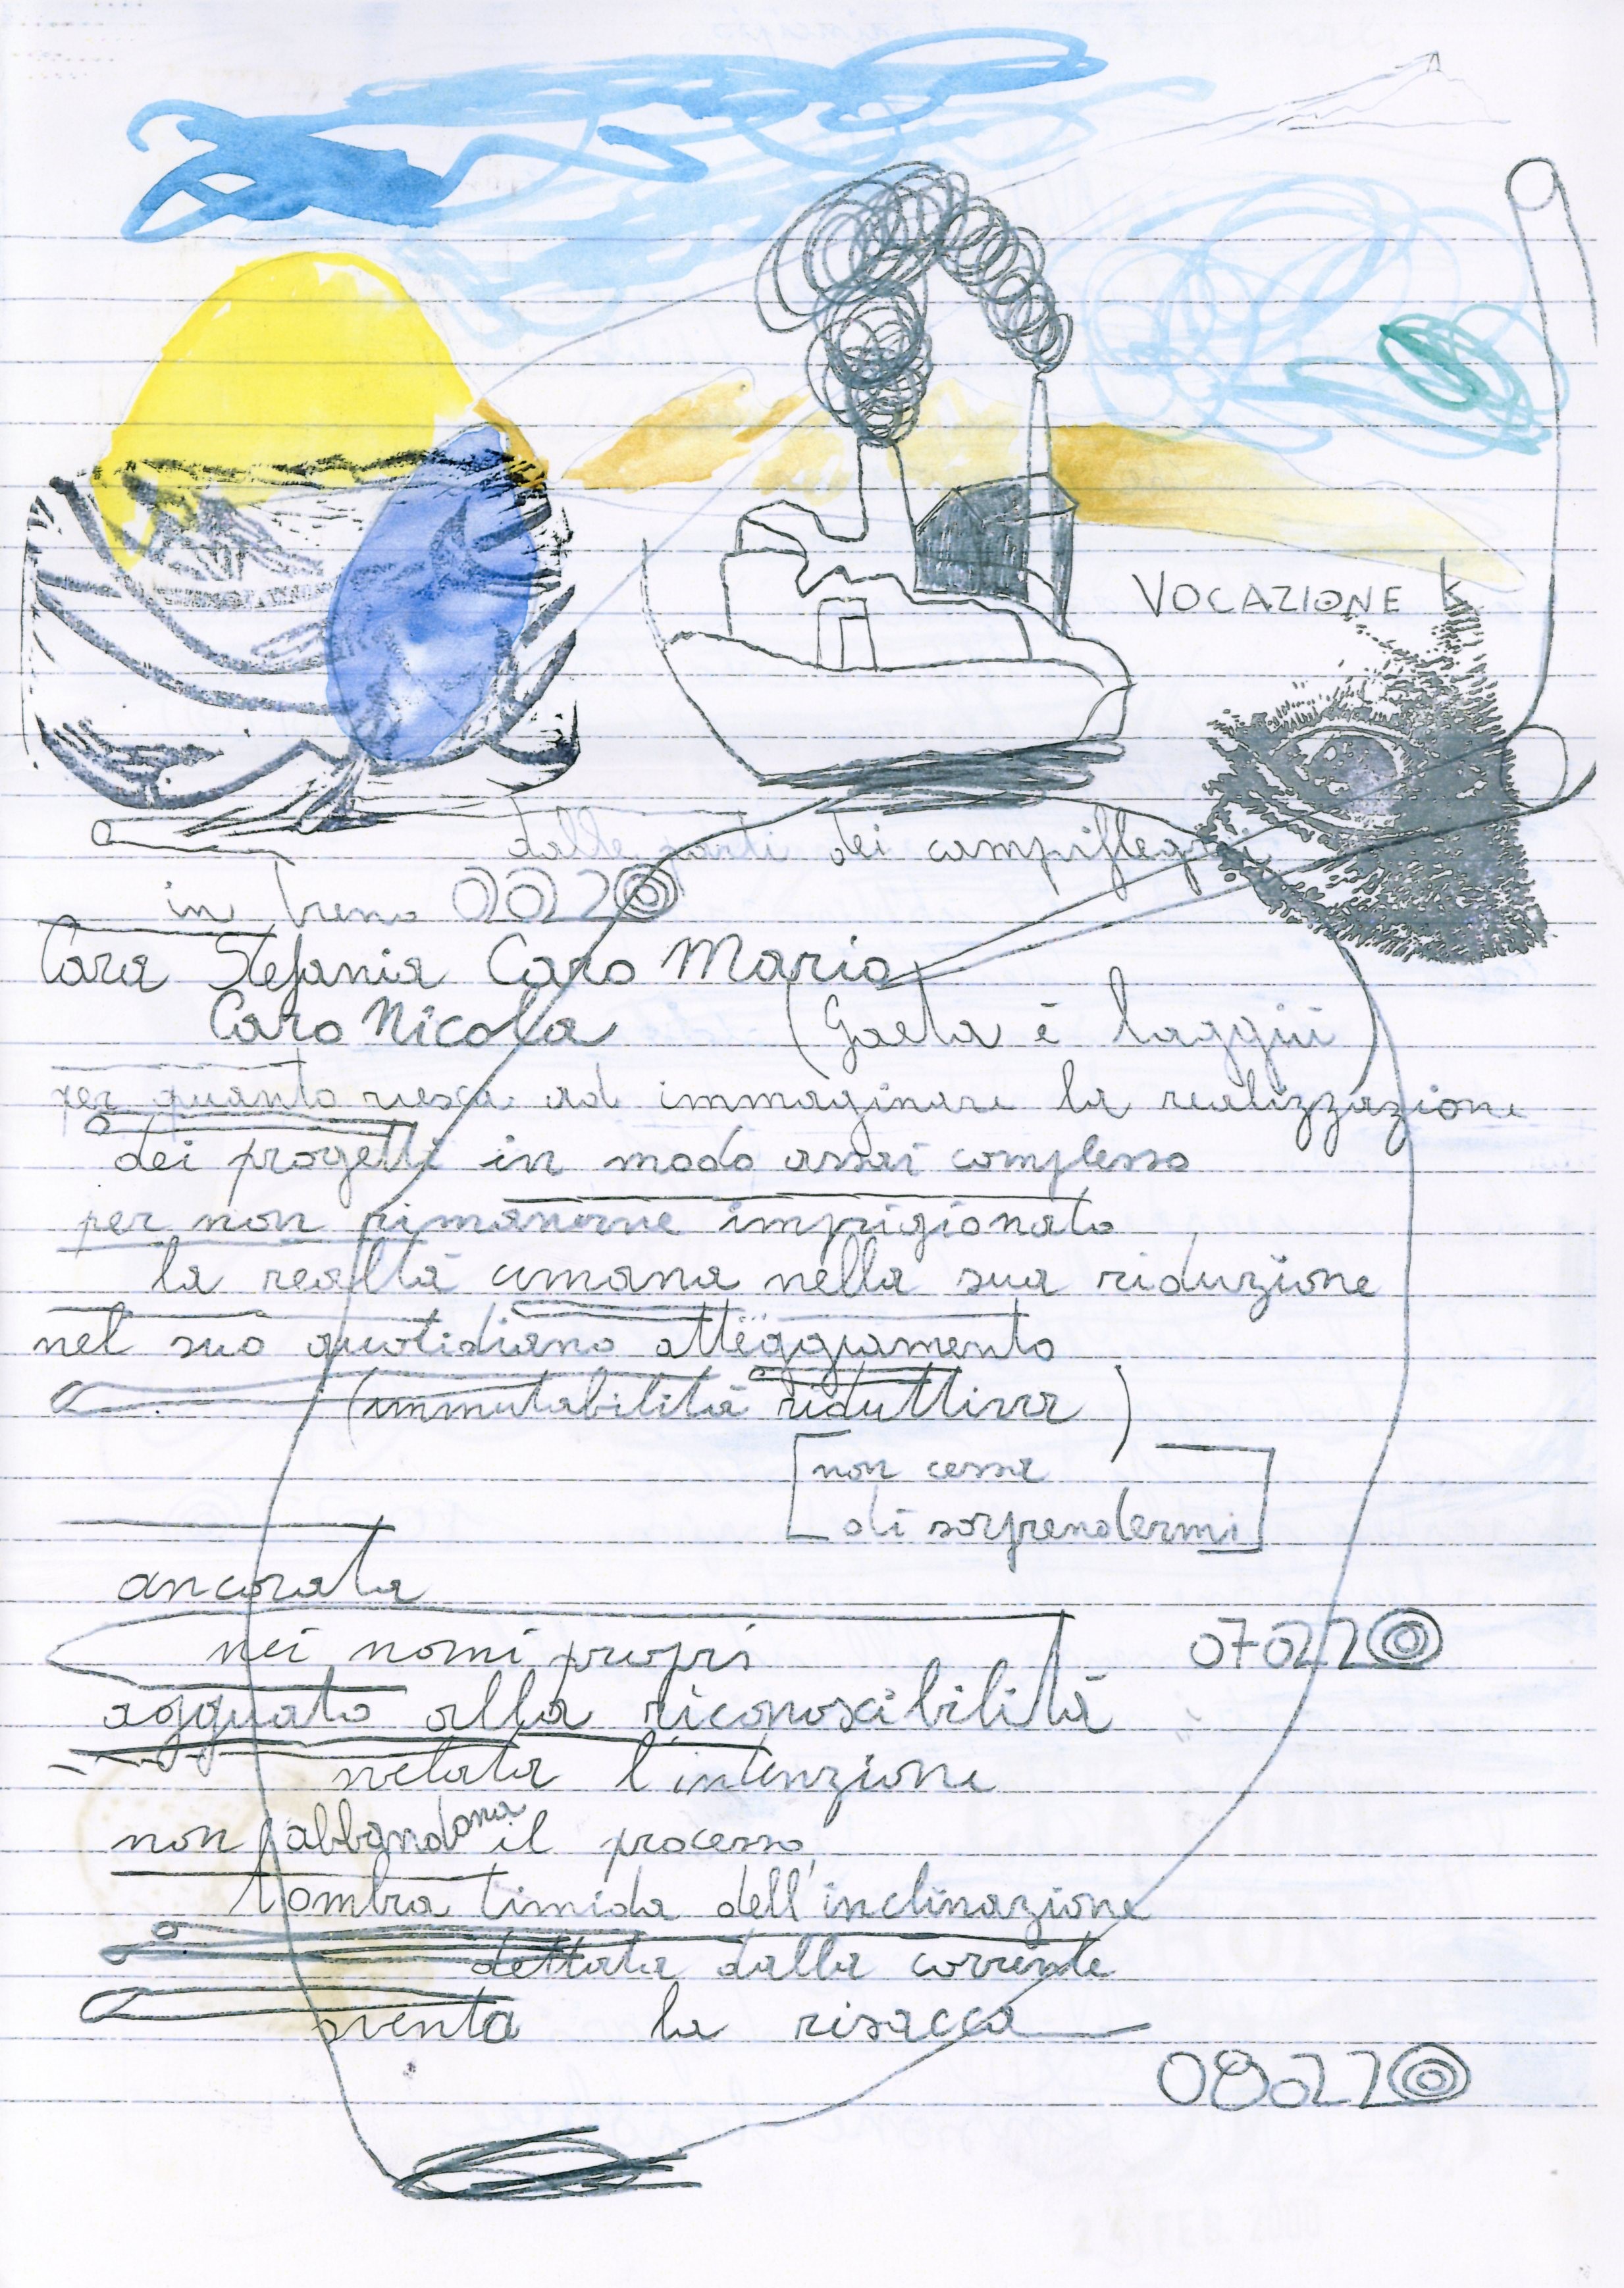 VOCAZIONE
dalle parti dei campi flegrei
in treno 0022
Cara Stefania Caro Mario
Caro Nicola (Gaeta è laggiù)
per quanto riesca ad immaginare la realizzazione
dei progetti in modo assai complesso
per non rimanerne imprigionato
la realtà umana nella sua riduzione
nel suo quotidiano atteggiamento
(immutabilità riduttiva)
[non cessa
di sorprendermi]
ancorata
nei nomi propri
07022
agguato alla riconoscibilità
svelata l'intenzione
non abbandona il processo
l'ombra timida dell'inclinazione
dettata dalla corrente
sventa la risacca
08022